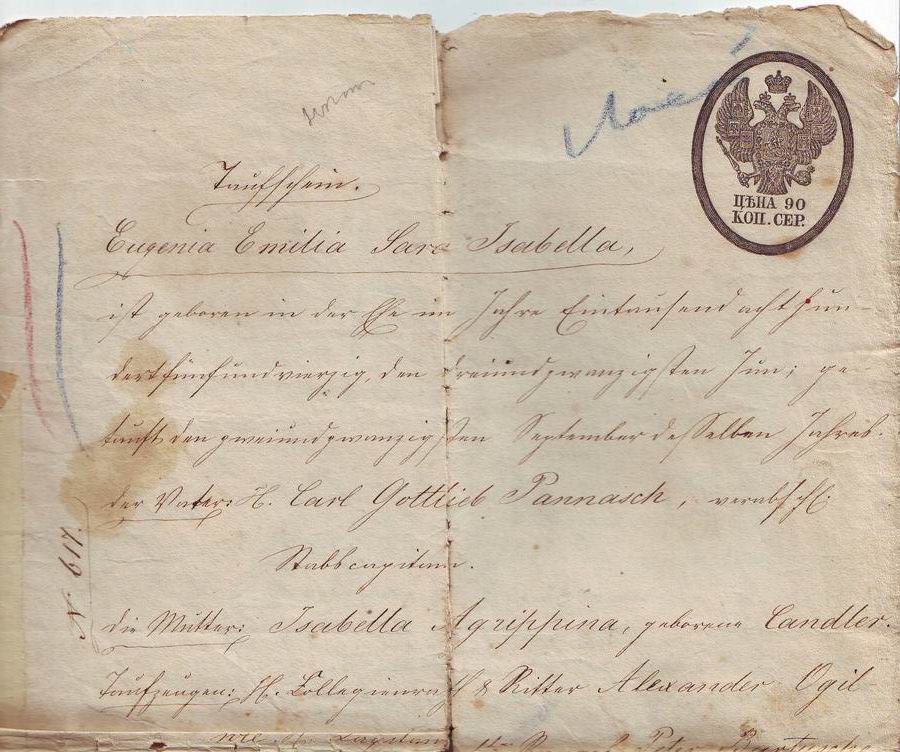 ЦѢНА 90
КОП. СЕР.
Taufschein.
Eugenia Emilia Sara Isabella,
ist geboren in der Ehe im Jahre Eintausend achthun-
dertfünfundvierzig, den dreiundzwanzigsten Juni; ge
tauft den zweiundzwanzigsten September desselben Jahres.
der Vater: H. Carl Gottlieb Pannasch, verabschl.
Stabscapitain.
N. 617.
die Mutter: Isabella Agrippina, geborene Candler.
Taufzeugen: H. Collegienrath & Ritter Alexander Ogil